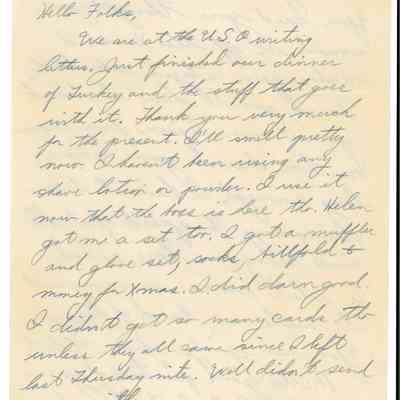 Hello Folks,
We are at the U.S.O writing
letters. Just finished our dinner
of Turkey and the stuff that goes
with it. Thank you very much
for the present. I'll smell pretty
now I haven't been using any
shave lotion or powder. I use it
now that the boss is here tho. Helen
got me a set too. I got a muffler
and glove set, socks, billfold &
money for Xmas. I did darn good.
I didn't get so many cards tho
unless they all came since I left
last Thursday nite. Well didn't send